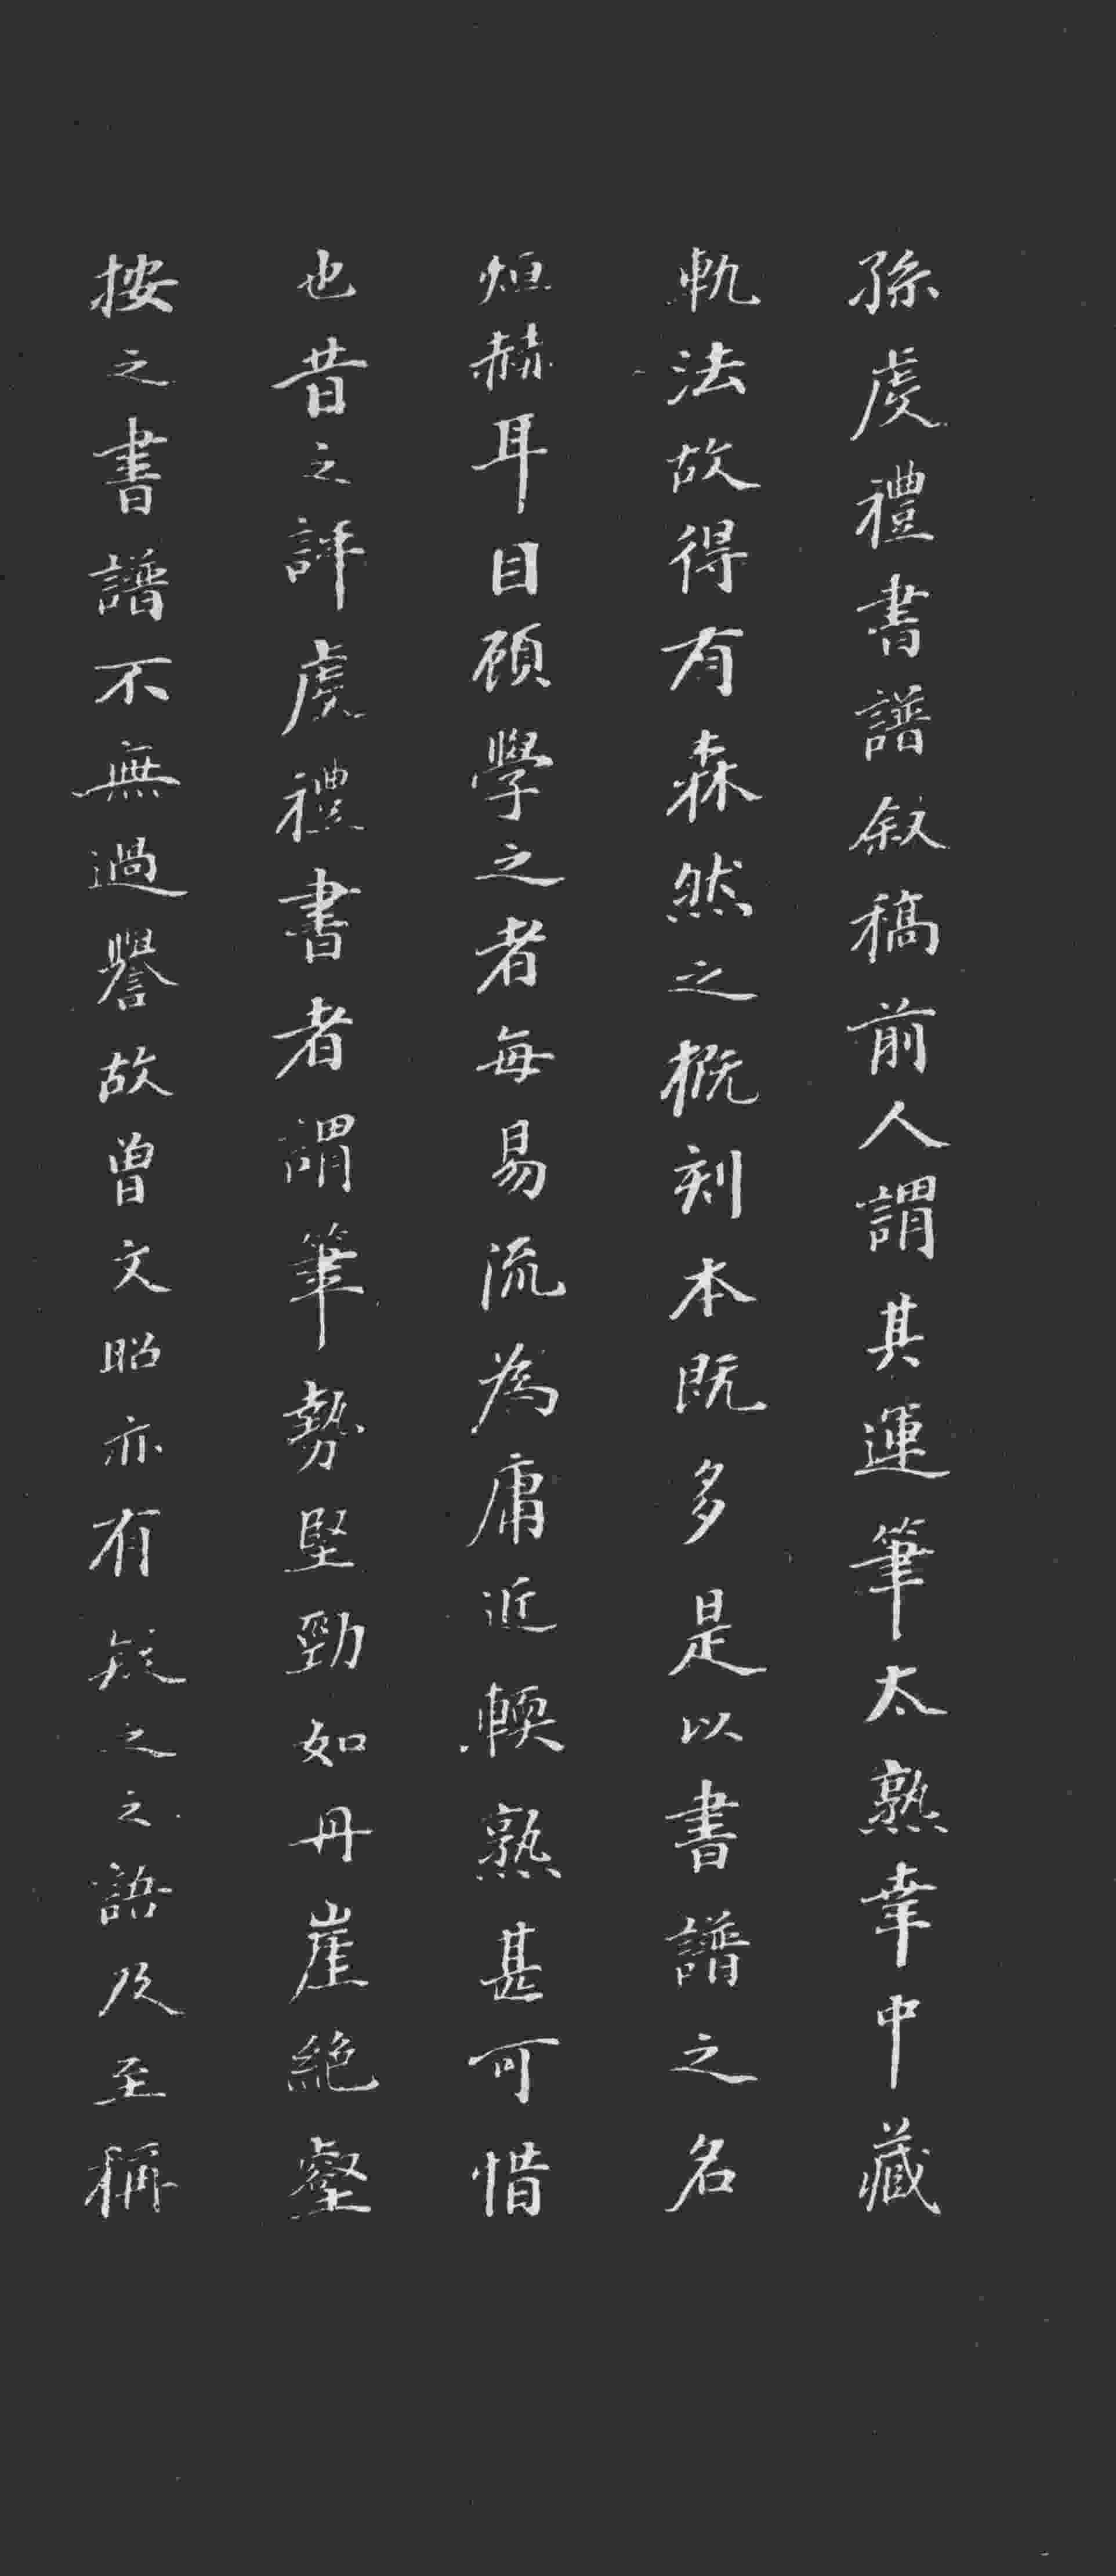 孫虔禮書譜敘稿前人謂其運筆太熟幸中藏
軌法故得有森然之概刻本既多是以書譜之名
烜赫耳目顧學之者每易流為庸近輭熟甚可惜
也昔之評虔禮書者謂筆勢堅勁如丹崖絕壑
按之書譜不無過譽故曾文昭亦有疑之之語及至稱